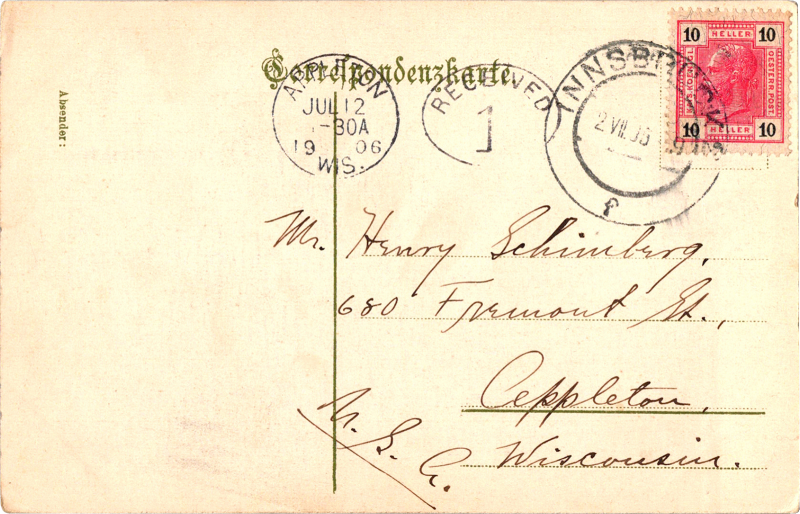 Correspondenzkarte.
Absender:
APPLETON
JUL 12
-30A
19 06
WIS.
RECEIVED
1
INNSBRUCK
2 VII 06
f
10 HELLER 10
OESTERR. POST
10 HELLER 10
Mr. Henry Schimberg,
680 Fremont St.,
Appleton,
Wisconsin.
U. S. A.